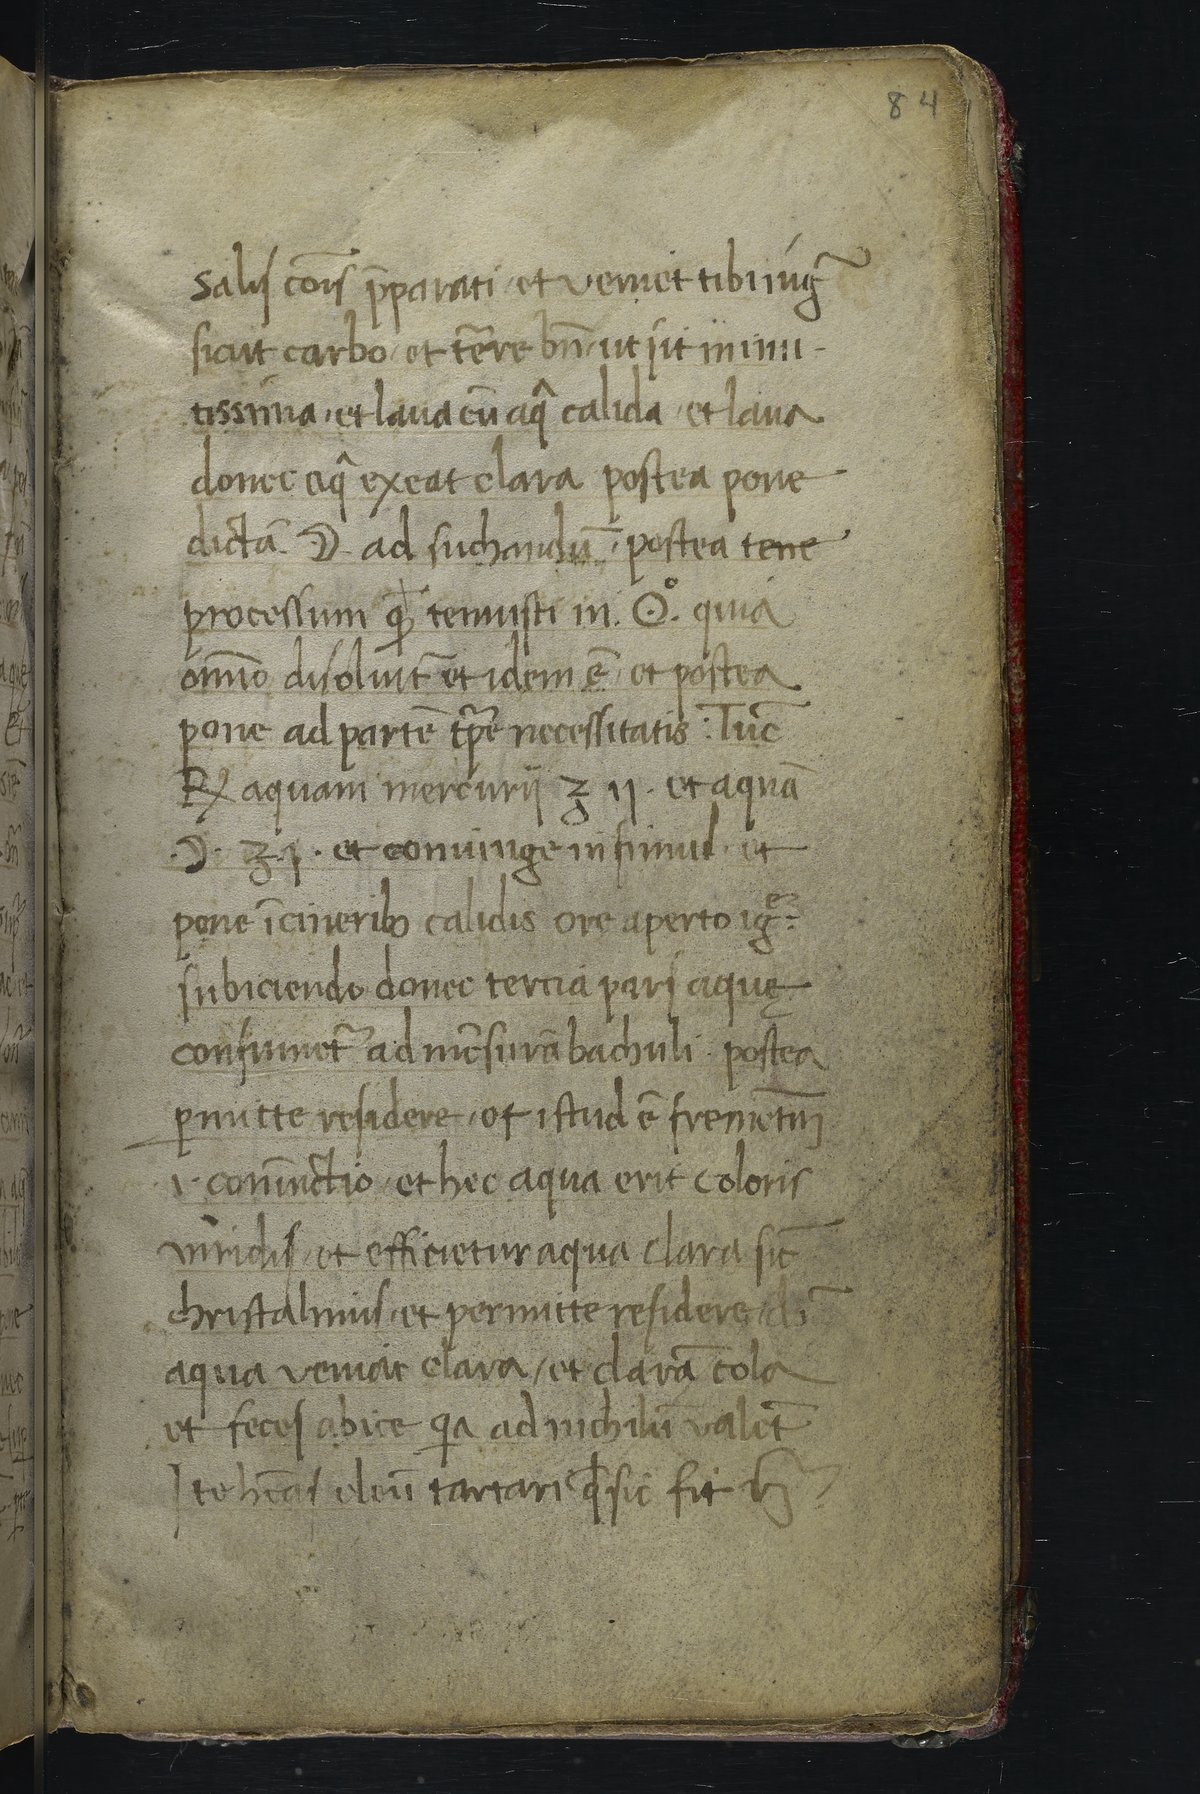 84
salis cōis p̄parati et veniet tibi nigr̄
sicut carbo et tēre bn̄ ut sit minu-
tissima et laua cū aq̄ calida et laua
donec aq̄ exeat clara postea pone
dictā ☽ ad suchandū postea tene
processum qͫ tenuisti in ☉° quia
om̄io disoluit̄ et idem ē et postea
pone ad partē tp̄re necessitatis : Tūc
℞ aquam mercurij ℥ ij · et aquā
· ☽ · ℥ j · et coniunge insimul et
pone ī cineribꝫ calidis ore aperto igē
subiciendo donec tercia pars aquę
consumet̄ ad mēsurā bachuli · postea
ꝑmitte residere et istud ē fremētū
ı· coniūctio et hec aqua erit coloris
viridis et efficietur aqua clara sic̄
christalinus et permitte residere
aqua veniat clara et clarā cola
et feces abice qꝛ ad nichilū valēt
Ite hēas oleū tartari q̄ sic fit